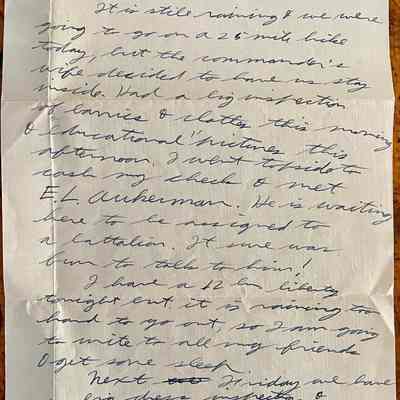 It is still raining & we were
going to go on a 25 mile hike
today, but the commander's
wife decided to have us stay
inside. Had a big inspection
of barrics & clothes this morning
& "educational" pictures this
afternoon. I went topside to
cash my check & met
E.L. Aukerman. He is waiting
here to be assigned to
a battalion. It sure was
fun to talk to him!
I have a 12 hr liberty
tonight but it is raining too
hard to go out, so I am going
to write to all my friends
& get some sleep
Next Friday we have
big dress inspection &